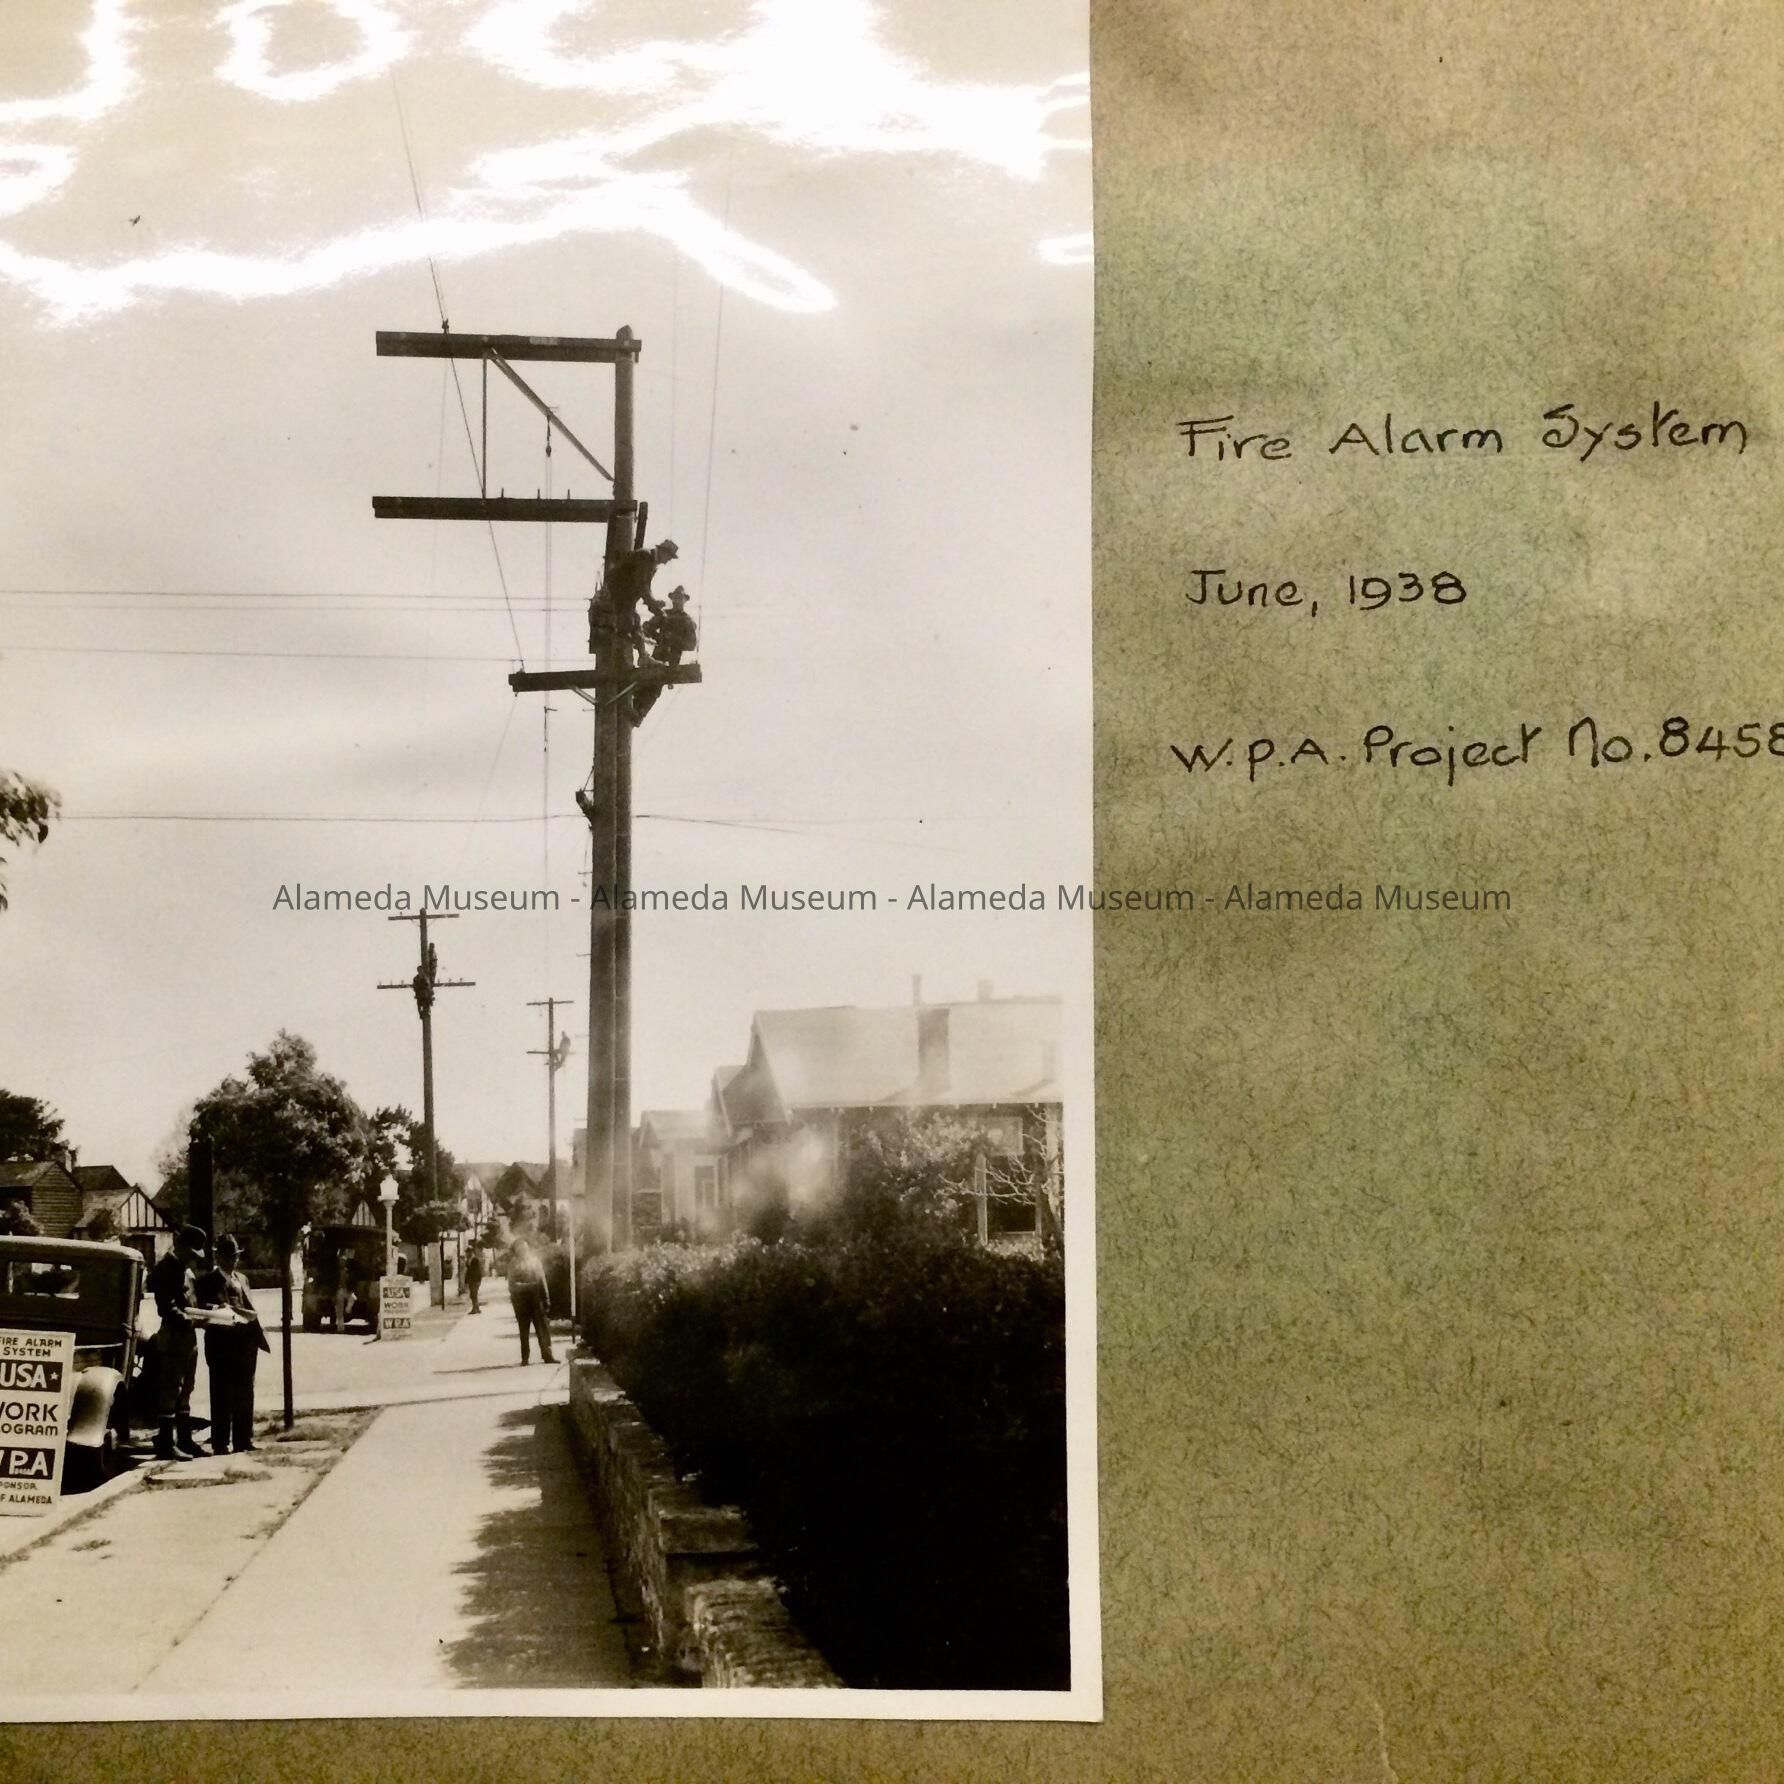 Fire Alarm System
June, 1938
W.P.A. Project No. 8458
Alameda Museum - Alameda Museum - Alameda Museum - Alameda Museum
USA
WORK
WPA
FIRE ALARM
SYSTEM
USA
WORK
OGRAM
WPA
ONSOR
F ALAMEDA